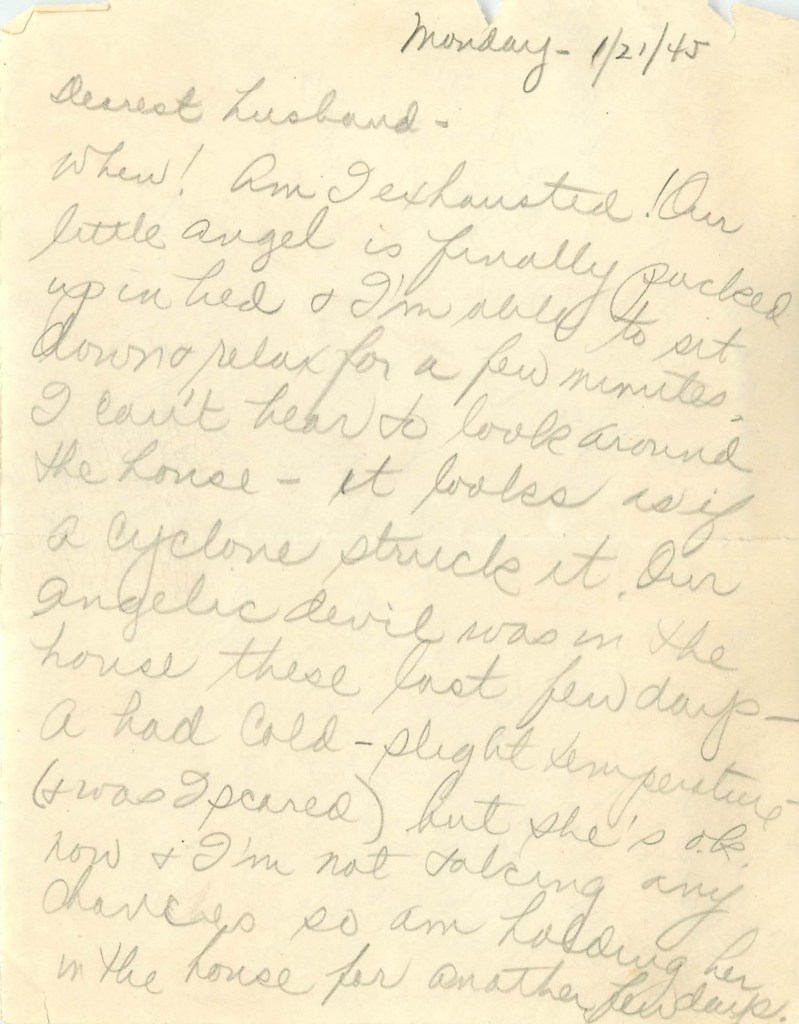 Monday - 1/21/45
Dearest husband -
Whew! Am I exhausted! Our
little angel is finally packed
up in bed & I'm able to sit
down & relax for a few minutes.
I can't bear to look around
the house - it looks as if
a cyclone struck it. Our
angelic devil was in the
house these last few days -
A bad cold - slight temperature
(& was I scared) but she's o.k.
now & I'm not taking any
chances so am holding her
in the house for another few days.